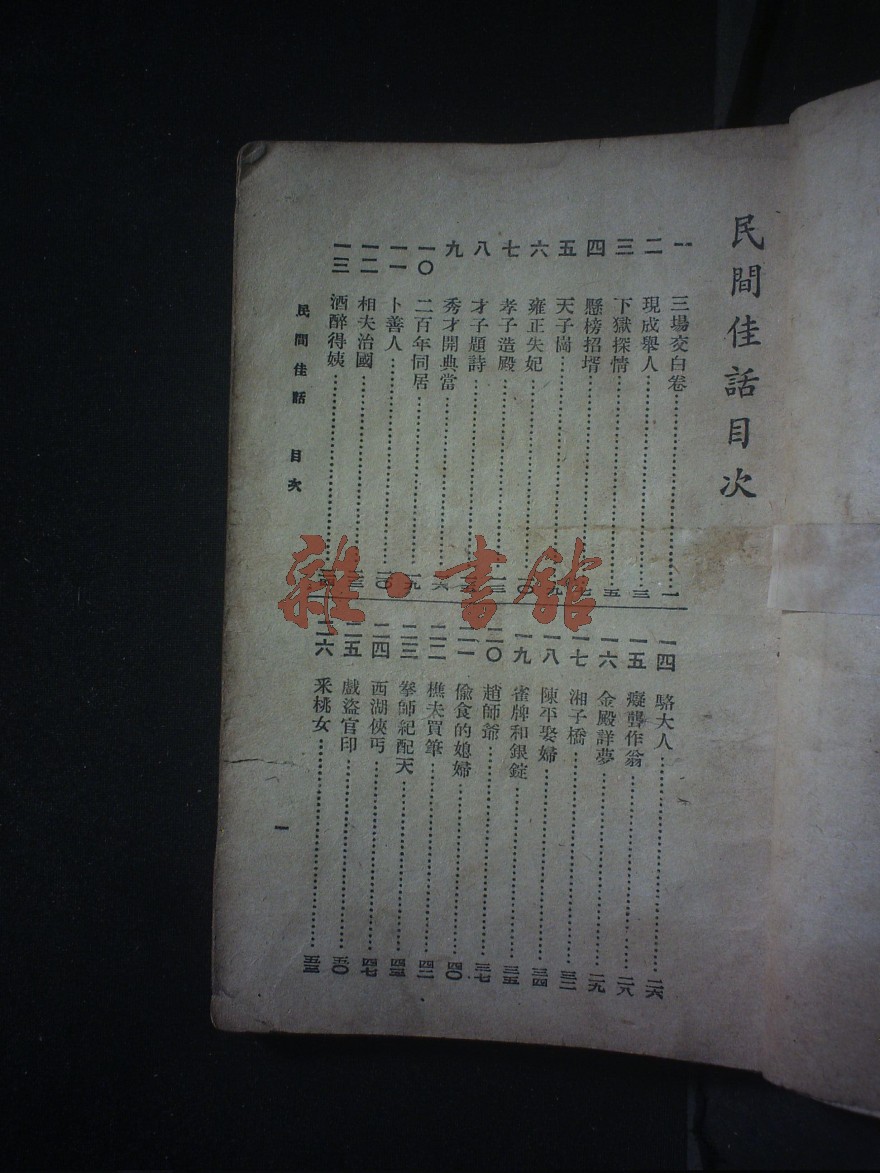 民間佳話目次
一 三場交白卷 一
二 現成舉人 三
三 下獄探情 五
四 懸榜招壻 七
五 天子崗 九
六 雍正失妃
七 孝子造殿
八 才子題詩
九 秀才開典當
一〇 二百年同居 一九
一一 卜善人 二〇
一二 相夫治國
一三 酒醉得姨
一四 駱大人 二六
一五 癡聾作翁 二八
一六 金殿詳夢 二九
一七 湘子橋 三二
一八 陳平娶婦 三四
一九 雀牌和銀錠 三五
二〇 趙師爺 三七
二一 偸食的媳婦 四〇
二二 樵夫買筆 四二
二三 拳師紀配天
二四 西湖俠丐 四七
二五 戲盜官印 五〇
二六 釆桃女
民間佳話 目次
一
雜·書館